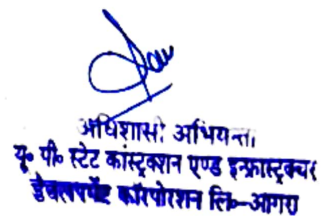 अधिशासी अभियन्ता
यू० पी० स्टेट कांस्ट्रक्शन एण्ड इन्फ्रास्ट्रक्चर
डेवलपमेंट कॉरपोरेशन लि०—आगरा